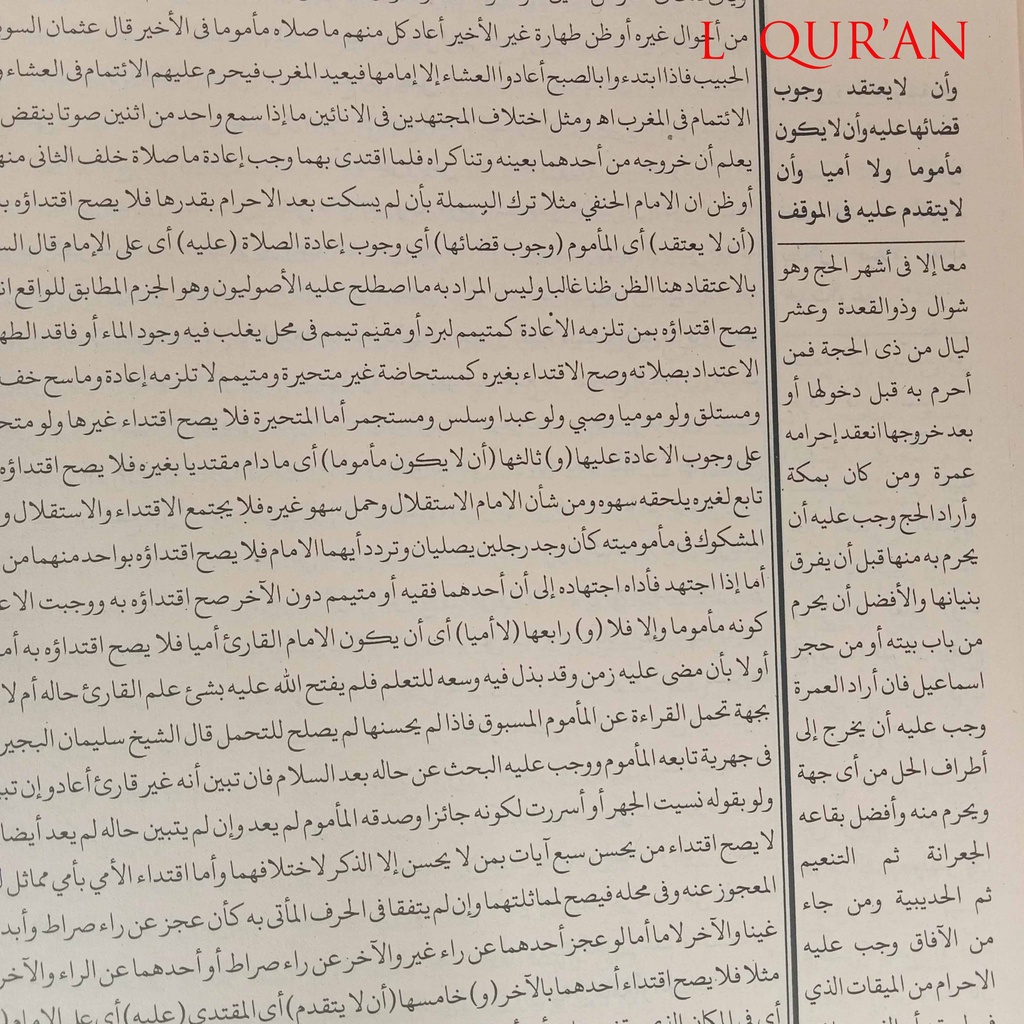 L QUR'AN
وأن لا يعتقد وجوب
قضائها عليه وأن لا يكون
مأموما ولا أميا وأن
لا يتقدم عليه فى الموقف
معا إلا فى أشهر الحج وهو
شوال وذو القعدة وعشر
ليال من ذى الحجة فمن
أحرم به قبل دخولها أو
بعد خروجها انعقد إحرامه
عمرة ومن كان بمكة
وأراد الحج وجب عليه أن
يحرم به منها قبل أن يفرق
بنيانها والأفضل أن يحرم
من باب بيته أو من حجر
اسماعيل فان أراد العمرة
وجب عليه أن يخرج إلى
أطراف الحل من أى جهة
ويحرم منه وأفضل بقاعه
الجعرانة ثم التنعيم
ثم الحديبية ومن جاء
من الآفاق وجب عليه
الاحرام من الميقات الذي
من أحوال غيره أو ظن طهارة غير الأخير أعاد كل منهم ما صلاه مأموما فى الأخير قال عثمان
الحبيب فاذا ابتدءوا بالصبح أعادوا العشاء إلا إمامها فيعيد المغرب فيحرم عليهم الائتمام فى العشاء
الائتمام فى المغرب اه ومثل اختلاف المجتهدين فى الانائين ما إذا سمع واحد من اثنين صوتا ينقض
يعلم أن خروجه من أحدهما بعينه وتناكراه فلما اقتدى بهما وجب إعادة ما صلاة خلف الثانى
أو ظن ان الامام الحنفي مثلا ترك البسملة بأن لم يسكت بعد الاحرام بقدرها فلا يصح اقتداؤه
(أن لا يعتقد) أى المأموم (وجوب قضائها) أي وجوب إعادة الصلاة (عليه) أى على الإمام قال
بالاعتقاد هنا الظن ظنا غالبا وليس المراد به ما اصطلح عليه الأصوليون وهو الجزم المطابق للواقع
يصح اقتداؤه بمن تلزمه الاعادة كمتيمم لبرد أو مقيم تيمم فى محل يغلب فيه وجود الماء أو فاقد
الاعتداد بصلاته وصح الاقتداء بغيره كمستحاضة غير متحيرة ومتيمم لا تلزمه إعادة وماسح خف
ومستلق ولو موميا وصبي ولو عبدا وسلس ومستجمر أما المتحيرة فلا يصح اقتداء غيرها ولو
على وجوب الاعادة عليها (و) ثالثها (أن لا يكون مأموما) أى ما دام مقتديا بغيره فلا يصح اقتداؤه
تابع لغيره يلحقه سهوه ومن شأن الامام الاستقلال وحمل سهو غيره فلا يجتمع الاقتداء والاستقلال
المشكوك فى مأموميته كأن وجد رجلين يصليان وتردد أيهما الامام فلا يصح اقتداؤه بواحد منهما من
أما إذا اجتهد فأداه اجتهاده إلى أن أحدهما فقيه أو متيمم دون الآخر صح اقتداؤه به ووجبت
كونه مأموما وإلا فلا (و) رابعها (لا أميا) أى أن يكون الامام القارئ أميا فلا يصح اقتداؤه به
أو لا بأن مضى عليه زمن وقد بذل فيه وسعه للتعلم فلم يفتح الله عليه بشئ علم القارئ حاله أم لا
بجهة تحمل القراءة عن المأموم المسبوق فاذا لم يحسنها لم يصلح للتحمل قال الشيخ سليمان
فى جهرية تابعه المأموم ووجب عليه البحث عن حاله بعد السلام فان تبين أنه غير قارئ أعاد وإن
ولو بقوله نسيت الجهر أو أسررت لكونه جائزا وصدقه المأموم لم يعد وإن لم يتبين حاله لم يعد أيضا
لا يصح اقتداء من يحسن سبع آيات بمن لا يحسن إلا الذكر لاختلافهما وأما اقتداء الأمي بأمي مماثل
المعجوز عنه وفى محله فيصح لمماثلتهما وإن لم يتفقا فى الحرف المأتى به كأن عجز عن راء صراط
غينا والآخر لاما أما لو عجز أحدهما عن راء غير والآخر عن راء صراط أو أحدهما عن الراء والآخر
مثلا فلا يصح اقتداء أحدهما بالآخر (و) خامسها (أن لا يتقدم) أى المقتدي (عليه) أى على